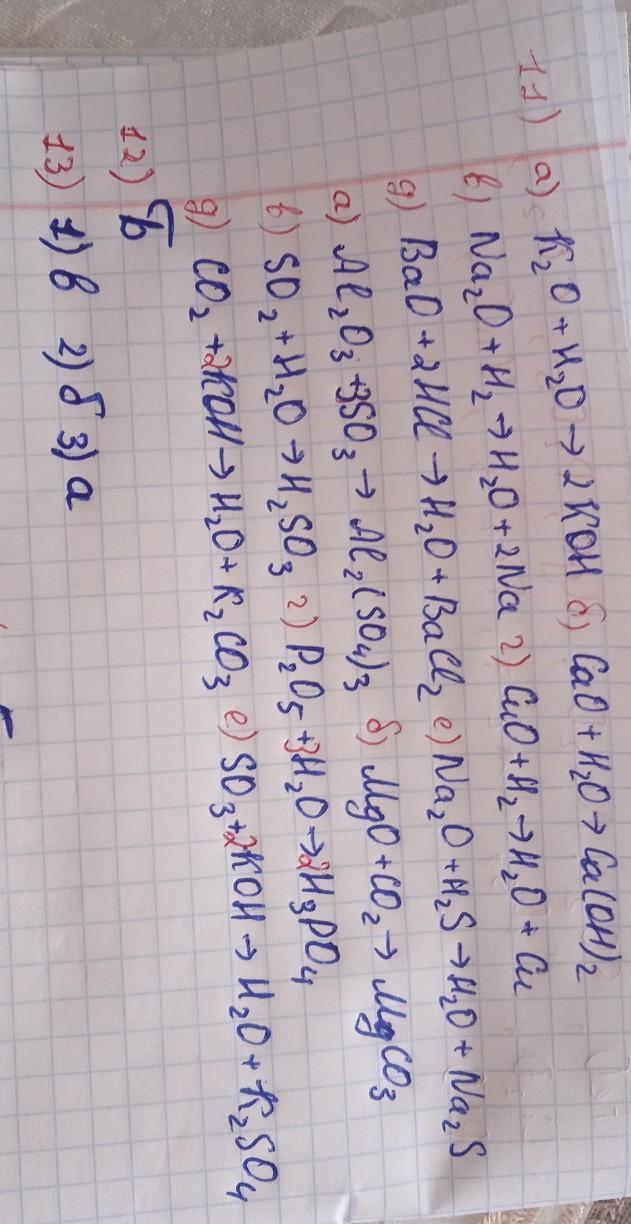 11) а) K₂O + H₂O → 2KOH б) CaO + H₂O → Ca(OH)₂
в) Na₂O + H₂ → H₂O + 2Na г) CuO + H₂ → H₂O + Cu
д) BaO + 2HCl → H₂O + BaCl₂ е) Na₂O + H₂S → H₂O + Na₂S
а) Al₂O₃ + 3SO₃ → Al₂(SO₄)₃ б) MgO + CO₂ → MgCO₃
в) SO₂ + H₂O → H₂SO₃ г) P₂O₅ + 3H₂O → 2H₃PO₄
д) CO₂ + 2KOH → H₂O + K₂CO₃ е) SO₃ + 2KOH → H₂O + K₂SO₄
12) Б
13) 1) в 2) б 3) а